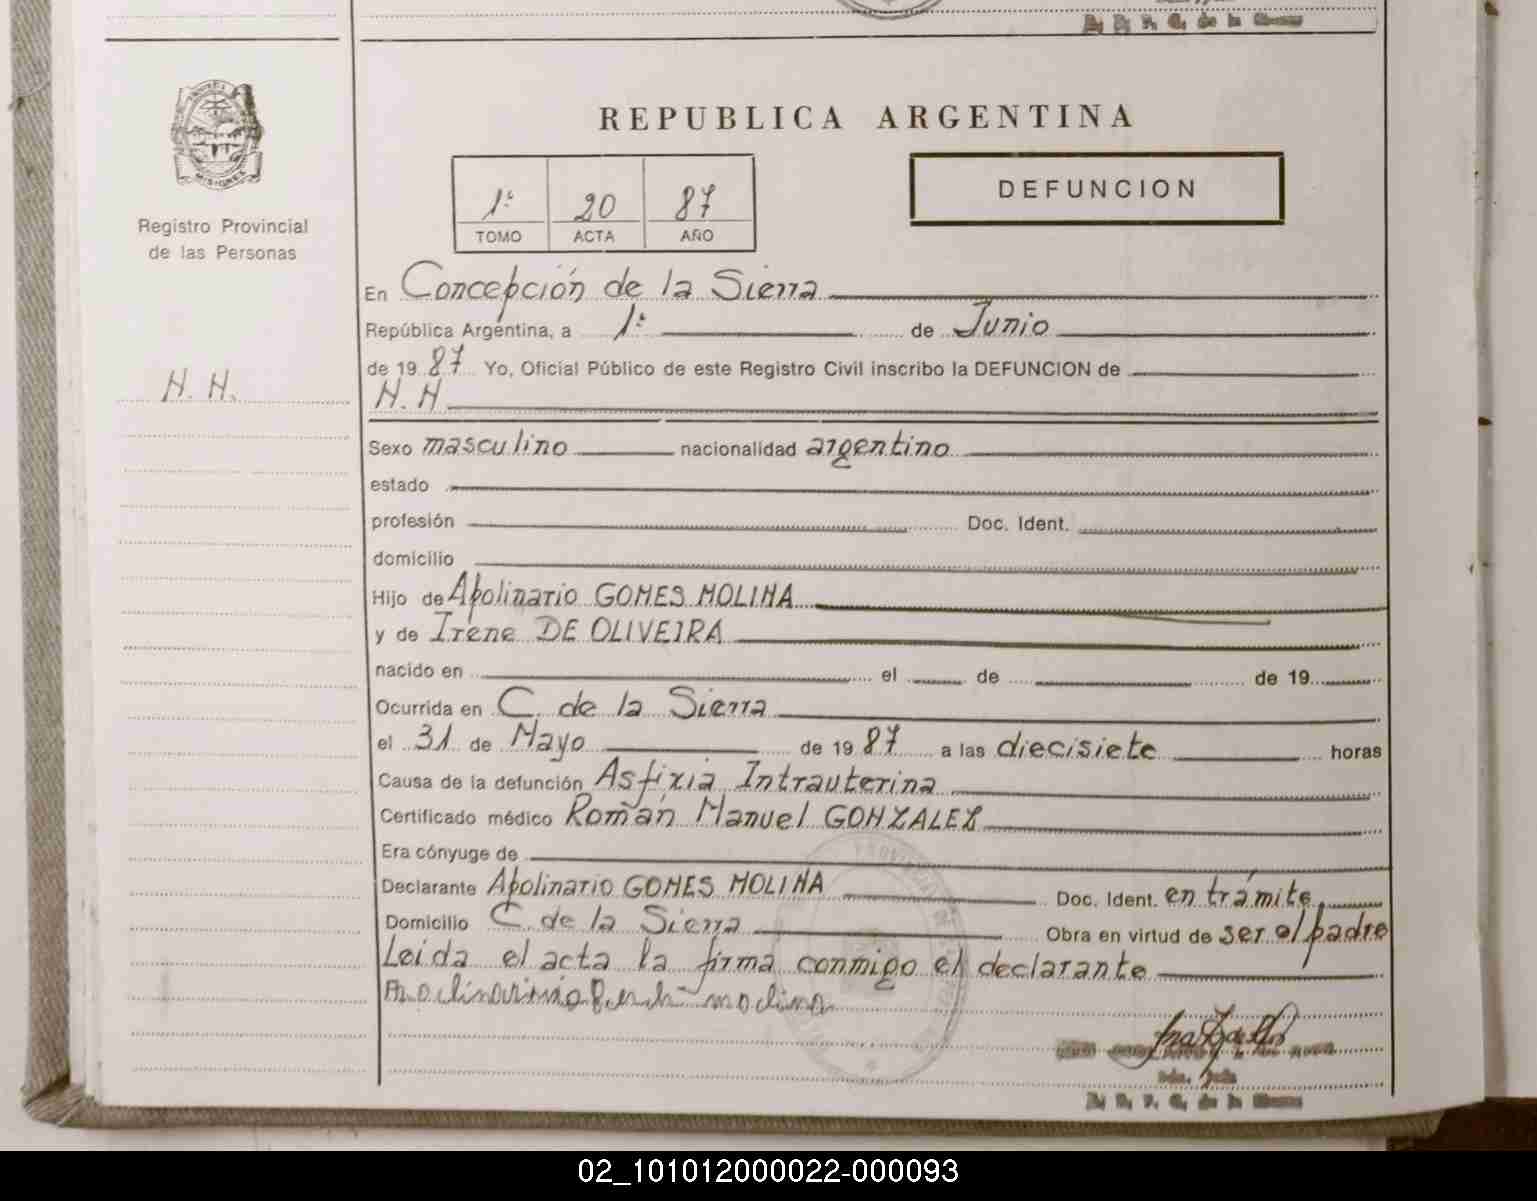 D. R. P. C. de la Sierra
MISIONES
Registro Provincial
de las Personas
REPUBLICA ARGENTINA
1º 20 87
TOMO ACTA AÑO
DEFUNCION
En Concepción de la Sierra
República Argentina, a 1º de Junio
de 19 87 Yo, Oficial Público de este Registro Civil inscribo la DEFUNCION de
N. N.
N. N
Sexo masculino nacionalidad argentino
estado
profesión Doc. Ident.
domicilio
Hijo de Apolinario GOMES MOLINA
y de Irene DE OLIVEIRA
nacido en el de de 19
Ocurrida en C. de la Sierra
el 31 de Mayo de 19 87 a las diecisiete horas
Causa de la defunción Asfixia Intrauterina
Certificado médico Román Manuel GONZALEZ
Era cónyuge de
Declarante Apolinario GOMES MOLINA Doc. Ident. en trámite
Domicilio C. de la Sierra Obra en virtud de ser el padre
Leida el acta la firma conmigo el declarante
molina
de la Sierra
02_101012000022-000093